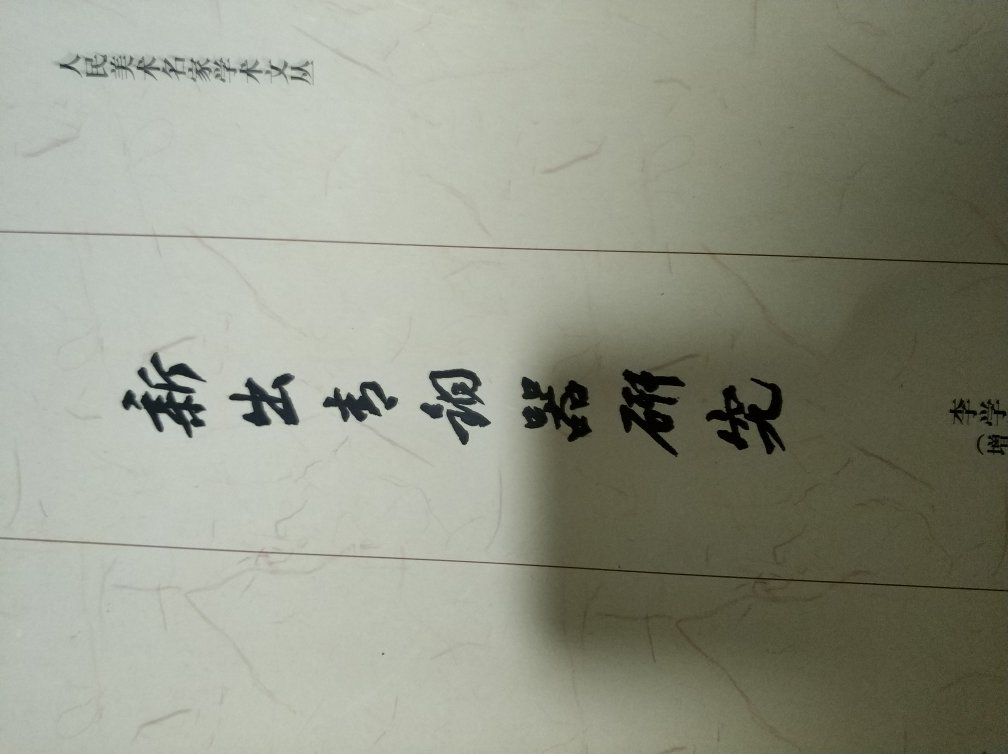 人民美术名家学术文丛
新出青铜器研究
李学
（增